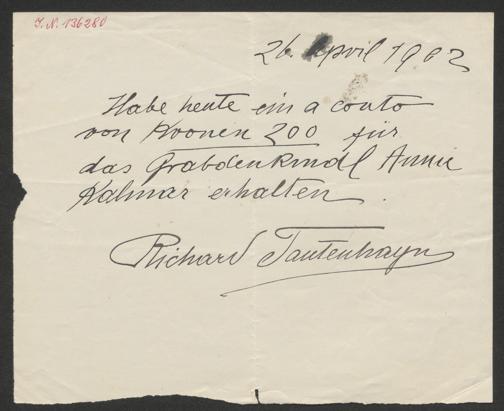 J. N. 136280
26. April 1902
Habe heute ein a conto
von Kronen 200 für
das Grabdenkmal Annie
Kalmar erhalten.
Richard Tautenhayn